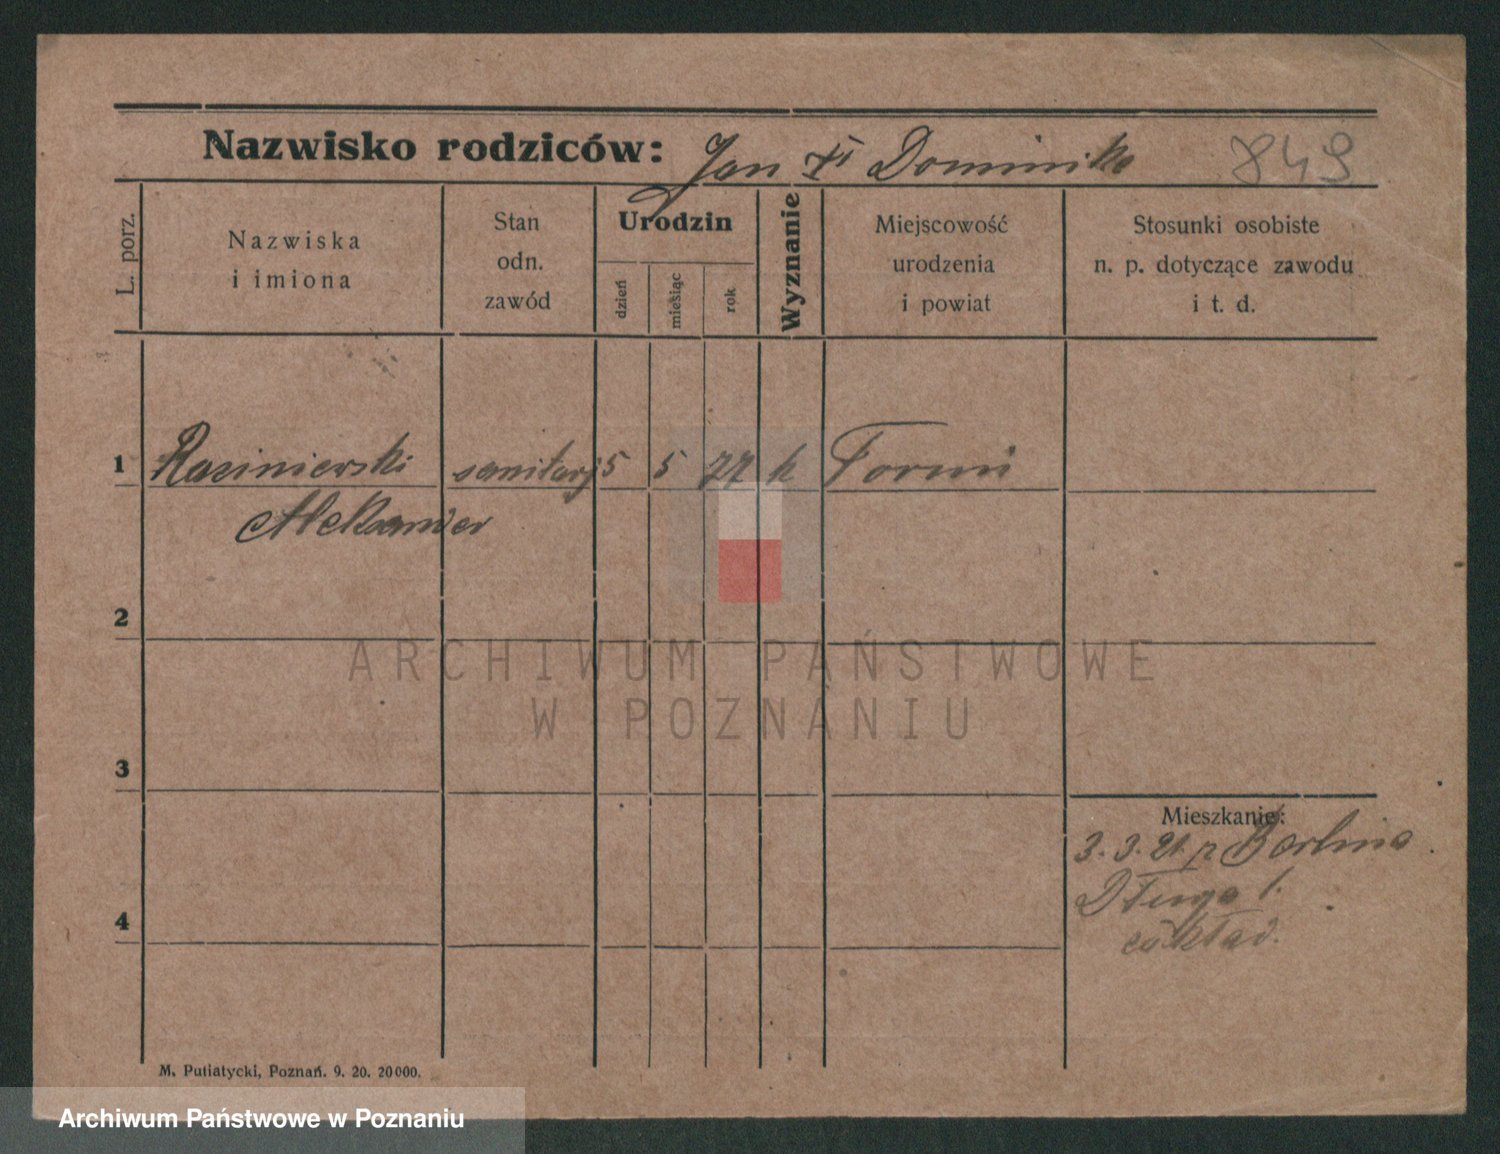 Nazwisko rodziców: Jan Dominika 849
L. porz.
Nazwiska
i imiona
Stan
odn.
zawód
Urodzin
dzień
miesiąc
rok
Wyznanie
Miejscowość
urodzenia
i powiat
Stosunki osobiste
n. p. dotyczące zawodu
i t. d.
1 sanitarj 5 5 77 k
Aleksander
2
ARCHIWUM PAŃSTWOWE
W POZNANIU
3
Mieszkanie:
3. 3. 21. z Berlina
4 Długa 1.
M. Putiatycki, Poznań. 9. 20. 20000.
Archiwum Państwowe w Poznaniu